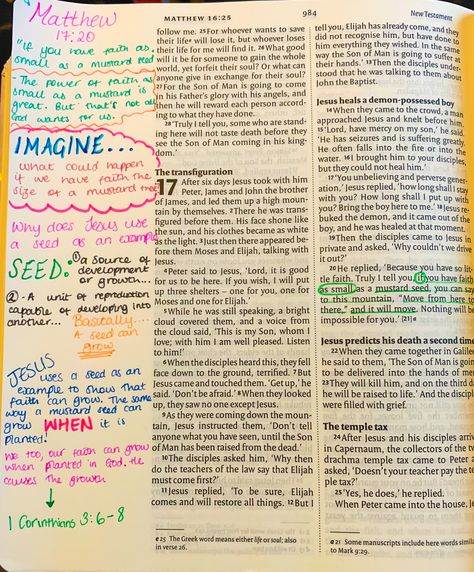 Matthew
17:20
"if you have faith as
small as a mustard seed
- The power of faith as
small as a mustard is
great. But that's not all
God wants for us.
IMAGINE...
what could happen
if we have faith the
size of a mustard tree
Why does Jesus use
a seed as an example
SEED: ① a source of
development
or growth...
② - A unit of reproduction
capable of developing into
another...
Basically...
A seed can
grow
JESUS
uses a seed as an
example to show that
faith can grow. The same
way a mustard seed can
grow WHEN it is
planted!
We too, our faith can grow
when planted in God. He
causes the growth
1 Corinthians 3:6-8
MATTHEW 16:25
984
New Testament
follow me. 25For whoever wants to save
their life will lose it, but whoever loses
their life for me will find it. 26What good
will it be for someone to gain the whole
world, yet forfeit their soul? Or what can
anyone give in exchange for their soul?
27For the Son of Man is going to come
in his Father's glory with his angels, and
then he will reward each person according
to what they have done.
28'Truly I tell you, some who are stand-
ing here will not taste death before they
see the Son of Man coming in his king-
dom.'
The transfiguration
17 After six days Jesus took with him
Peter, James and John the brother
of James, and led them up a high moun-
tain by themselves. 2There he was trans-
figured before them. His face shone like
the sun, and his clothes became as white
as the light. 3Just then there appeared be-
fore them Moses and Elijah, talking with
Jesus.
4Peter said to Jesus, 'Lord, it is good
for us to be here. If you wish, I will put
up three shelters – one for you, one for
Moses and one for Elijah.'
5While he was still speaking, a bright
cloud covered them, and a voice from
the cloud said, 'This is my Son, whom I
love; with him I am well pleased. Listen
to him!'
6When the disciples heard this, they fell
face down to the ground, terrified. 7But
Jesus came and touched them. 'Get up,' he
said. 'Don't be afraid.' 8When they looked
up, they saw no one except Jesus.
9As they were coming down the moun-
tain, Jesus instructed them, 'Don't tell
anyone what you have seen, until the Son
of Man has been raised from the dead.'
10The disciples asked him, 'Why then
do the teachers of the law say that Elijah
must come first?'
11Jesus replied, 'To be sure, Elijah
comes and will restore all things. 12But I
e 25 The Greek word means either life or soul; also
in verse 26.
tell you, Elijah has already come, and they
did not recognise him, but have done to
him everything they wished. In the same
way the Son of Man is going to suffer at
their hands.' 13Then the disciples under-
stood that he was talking to them about
John the Baptist.
Jesus heals a demon-possessed boy
14When they came to the crowd, a man
approached Jesus and knelt before him.
15'Lord, have mercy on my son,' he said.
'He has seizures and is suffering greatly.
He often falls into the fire or into the
water. 16I brought him to your disciples,
but they could not heal him.'
17'You unbelieving and perverse gener-
ation,' Jesus replied, 'how long shall I stay
with you? How long shall I put up with
you? Bring the boy here to me.' 18Jesus re-
buked the demon, and it came out of the
boy, and he was healed at that moment.
19Then the disciples came to Jesus in
private and asked, 'Why couldn't we drive
it out?'
20He replied, 'Because you have so lit-
tle faith. Truly I tell you, if you have faith
as small as a mustard seed, you can say
to this mountain, "Move from here to
there," and it will move. Nothing will be
impossible for you.' [21] e
Jesus predicts his death a second time
22When they came together in Galilee,
he said to them, 'The Son of Man is going
to be delivered into the hands of men.
23They will kill him, and on the third day
he will be raised to life.' And the disciples
were filled with grief.
The temple tax
24After Jesus and his disciples arrived
in Capernaum, the collectors of the two-
drachma temple tax came to Peter and
asked, 'Doesn't your teacher pay the tem-
ple tax?'
25'Yes, he does,' he replied.
When Peter came into the house, Jesus
e 21 Some manuscripts include here words similar
to Mark 9:29.